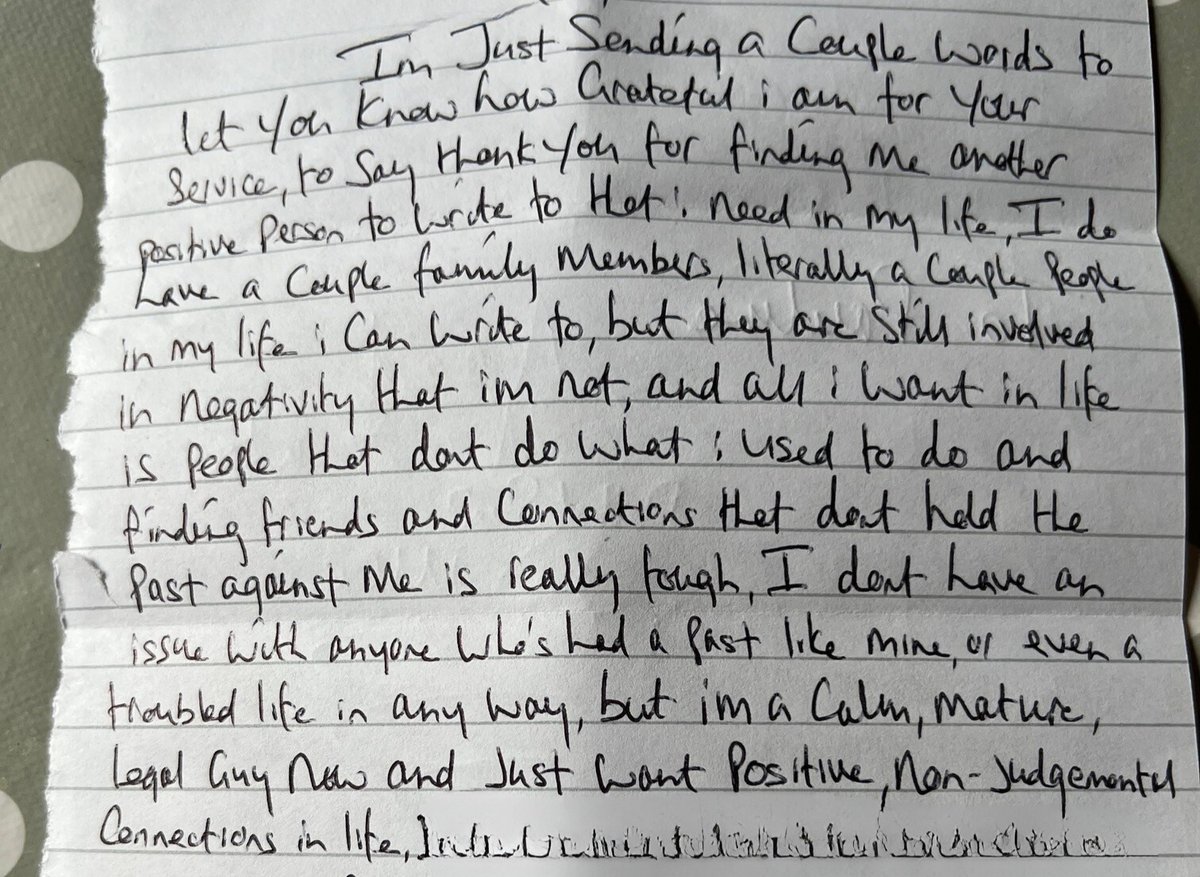 Im Just Sending a Couple words to
let you know how Grateful i am for your
Service, to Say thank you for finding me another
positive Person to write to that i need in my life, I do
have a Couple family members, literally a Couple People
in my life i Can write to, but they are still involved
in negativity that im not, and all i want in life
is People that dont do what i used to do and
finding friends and Connections that dont hold the
Past against me is really tough, I dont have an
issue with anyone who's had a Past like mine, or even a
troubled life in any way, but im a Calm, mature,
Legal Guy Now and Just want Positive, Non-Judgemental
Connections in life,